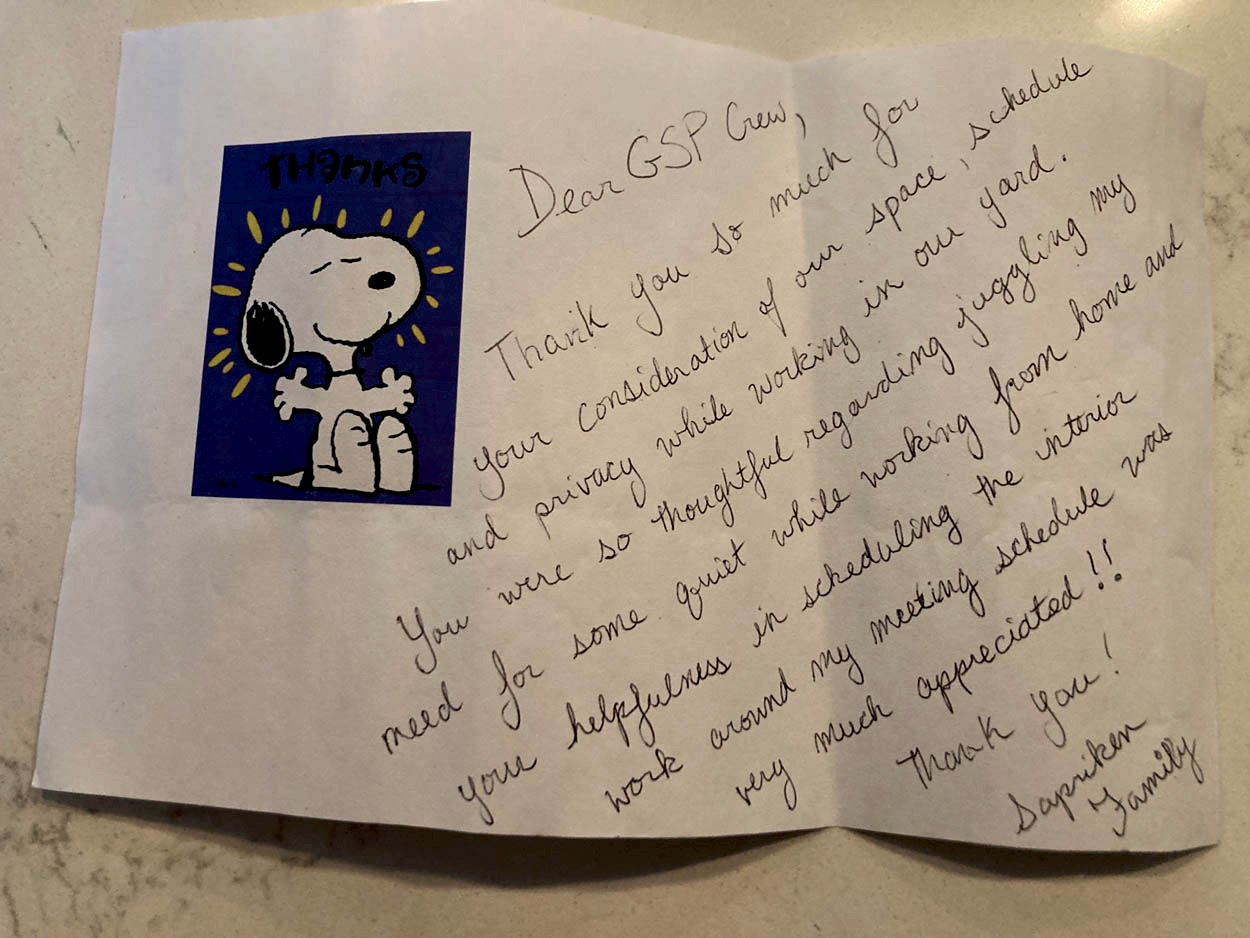 THANKS
Dear GSP Crew,
Thank you so much for
your consideration of our space, schedule
and privacy while working in our yard.
You were so thoughtful regarding juggling my
need for some quiet while working from home and
your helpfulness in scheduling the interior
work around my meeting schedule was
very much appreciated!!
Thank you!
Sapriken
Family